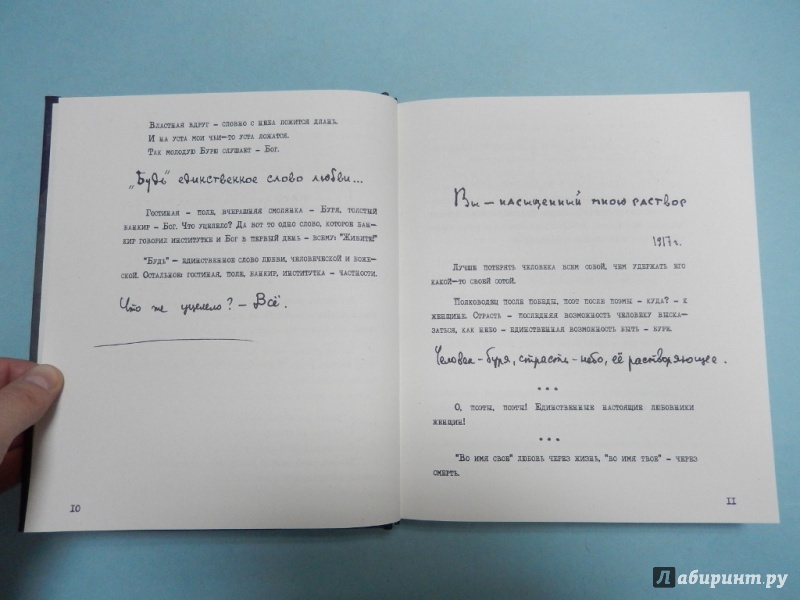 Властная вдруг – словно с неба ложится длань.
И на уста мои чьи-то уста ложатся.
Так молодую Бурю слушает – Бог.
„Будь" единственное слово любви...
Гостиная – поле, вчерашняя смолянка – Буря, толстый
банкир – Бог. Что уцелело? Да вот то одно слово, которое бан-
кир говорил институтке и Бог в первый день – всему: "Живить!"
"Будь" – единственное слово любви, человеческой и боже-
ской. Остальное: гостиная, поле, банкир, институтка – частности.
Что же уцелело? – Всё.
10
Вы – насыщенный мною раствор
1917 г.
Лучше потерять человека всем собой, чем удержать его
какой-то своей сотой.
Полководец после победы, поэт после поэмы – куда? – к
женщине. Страсть – последняя возможность человеку выска-
заться, как небо – единственная возможность быть – буре.
Человек – буря, страсть – небо, её растворяющее.
* * *
О, поэты, поэты! Единственные настоящие любовники
женщин!
* * *
"Во имя свое" любовь через жизнь, "во имя твое" – через
смерть.
11
Лабиринт.ру